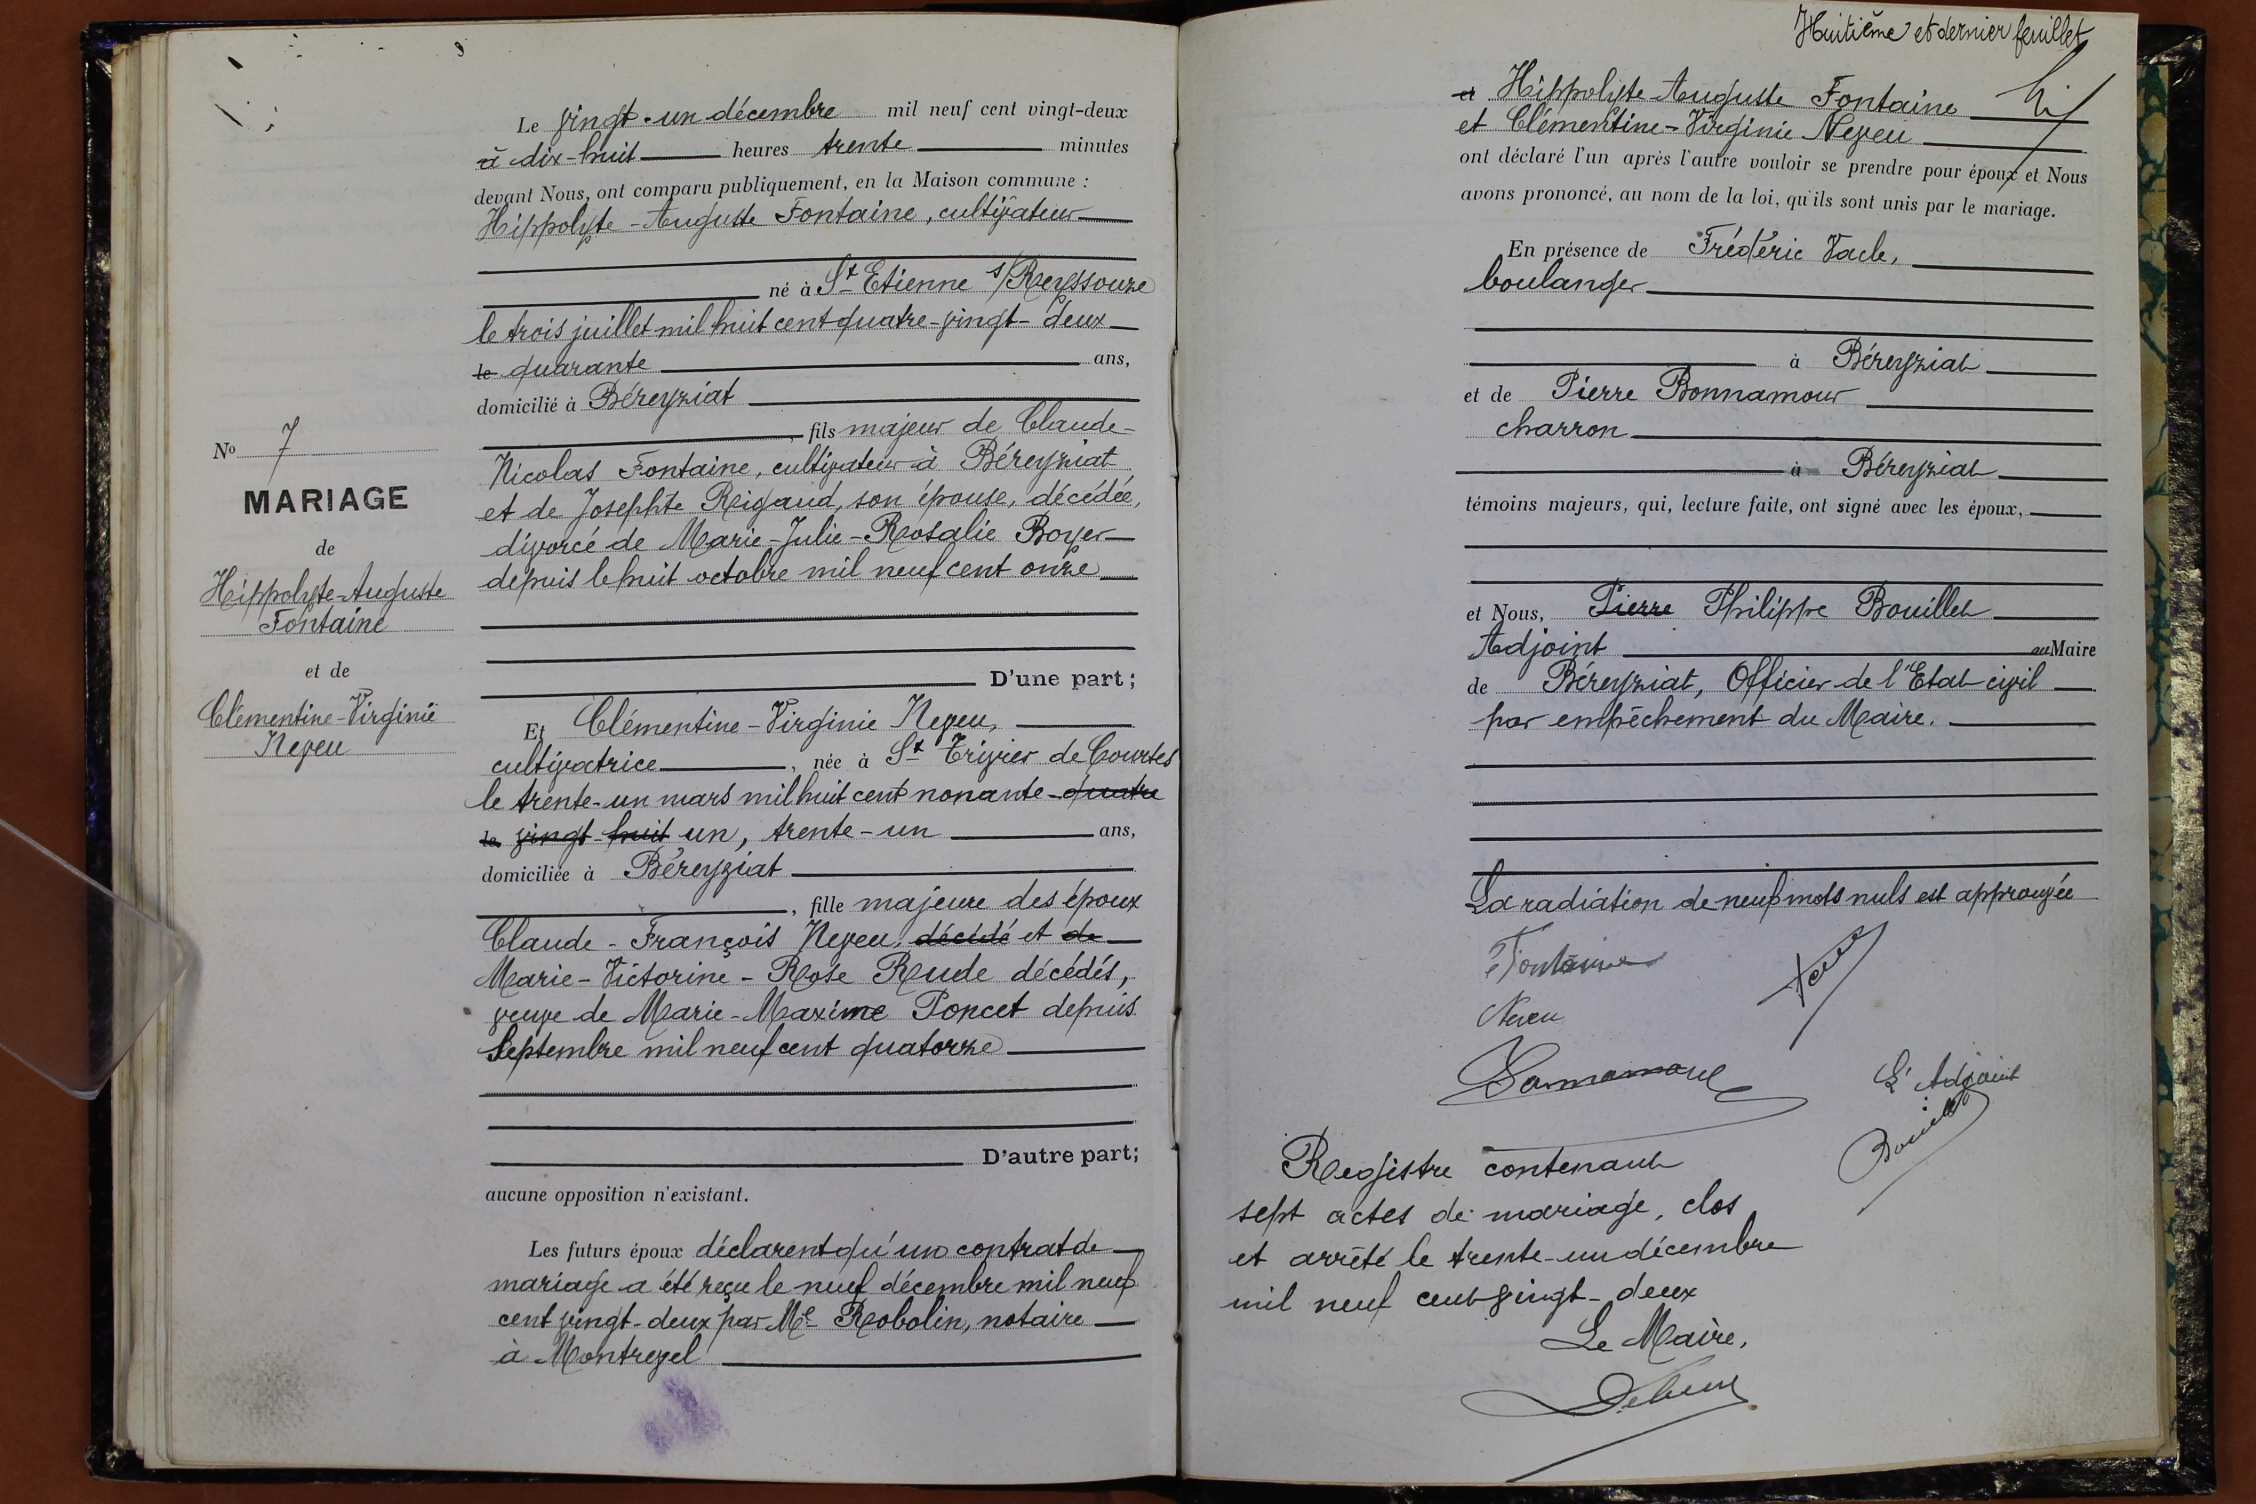 Le vingt-un décembre mil neuf cent vingt-deux
à dix-huit heures trente minutes
devant Nous, ont comparu publiquement, en la Maison commune :
Hippolyte-Auguste Fontaine, cultivateur
né à St Etienne s/Reyssouze
le trois juillet mil huit cent quatre-vingt-deux
le quarante ans,
domicilié à Béreyziat
, fils majeur de Claude-
Nicolas Fontaine, cultivateur à Béreyziat
et de Josephte Rigaud, son épouse, décédée,
divorcé de Marie-Julie-Rosalie Boyer
depuis le huit octobre mil neuf cent onze
D'une part;
No 7
MARIAGE
de
Hippolyte-Auguste
Fontaine
et de
Clémentine-Virginie
Neveu
Et Clémentine-Virginie Neveu,
cultivatrice, née à St Trivier de Courtes
le trente-un mars mil huit cent nonante-quatre
le vingt-huit un, trente-un ans,
domiciliée à Béreyziat
, fille majeure des époux
Claude-François Neveu, décédé et de
Marie-Victorine-Rose Rude décédés,
veuve de Marie-Maxime Poncet depuis
Septembre mil neuf cent quatorze
D'autre part;
aucune opposition n'existant.
Les futurs époux déclarent qu'un contrat de
mariage a été reçu le neuf décembre mil neuf
cent vingt-deux par Me Robolin, notaire
à Montrevel
Huitième et dernier feuillet
et Hippolyte-Auguste Fontaine
et Clémentine-Virginie Neveu
ont déclaré l'un après l'autre vouloir se prendre pour époux et Nous
avons prononcé, au nom de la loi, qu'ils sont unis par le mariage.
En présence de Frédéric Vacle,
boulanger
à Béreyziat
et de Pierre Bonnamour
charron
à Béreyziat
témoins majeurs, qui, lecture faite, ont signé avec les époux,
et Nous, Pierre Philippe Bouillet
Adjoint au Maire
de Béreyziat, Officier de l'Etat-civil
par empêchement du Maire.
La radiation de neuf mots nuls est approuvée
Fontaine
Neveu
Bonnamour
L'Adjoint
Bouillet
Registre contenant
sept actes de mariage, clos
et arrêté le trente-un décembre
mil neuf cent vingt-deux
Le Maire,